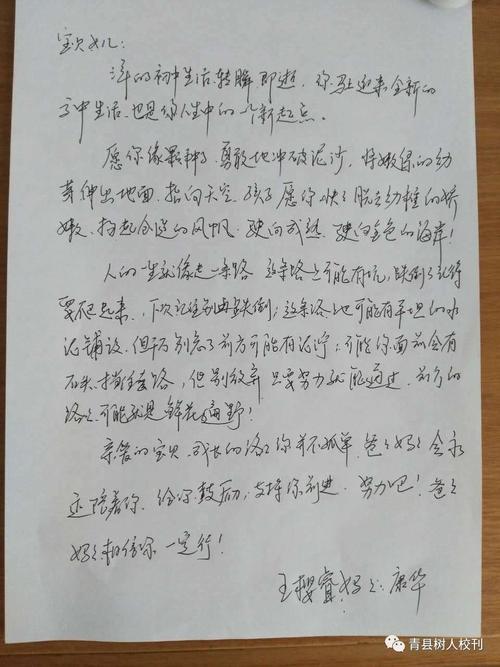 宝贝女儿:
三年的初中生活转瞬即逝,你马上迎来全新的
高中生活,也是你人生中的一个新起点。
愿你像颗种子,勇敢地冲破泥沙,将嫩绿的幼
芽伸出地面,指向天空。孩子愿你快快脱去幼稚的娇
嫩、扬起合适的风帆、驶向成熟、驶向金色的海岸!
人的一生就像走一条路,这条路上可能有坑,跌倒了就得
要爬起来,下次记住别再跌倒;这条路上也可能有平坦的水
泥铺设,但千万别忘了前方可能有泥泞;可能你面前会有
石头挡住去路,但别放弃,只要努力就能通过,前方的
路上可能就是鲜花遍野!
亲爱的宝贝,成长的路上你并不孤单,爸爸妈妈会永
远陪着你,给你鼓励,支持你前进,努力吧!爸爸
妈妈相信你一定行!
王樱睿妈妈:唐华
青县树人校刊